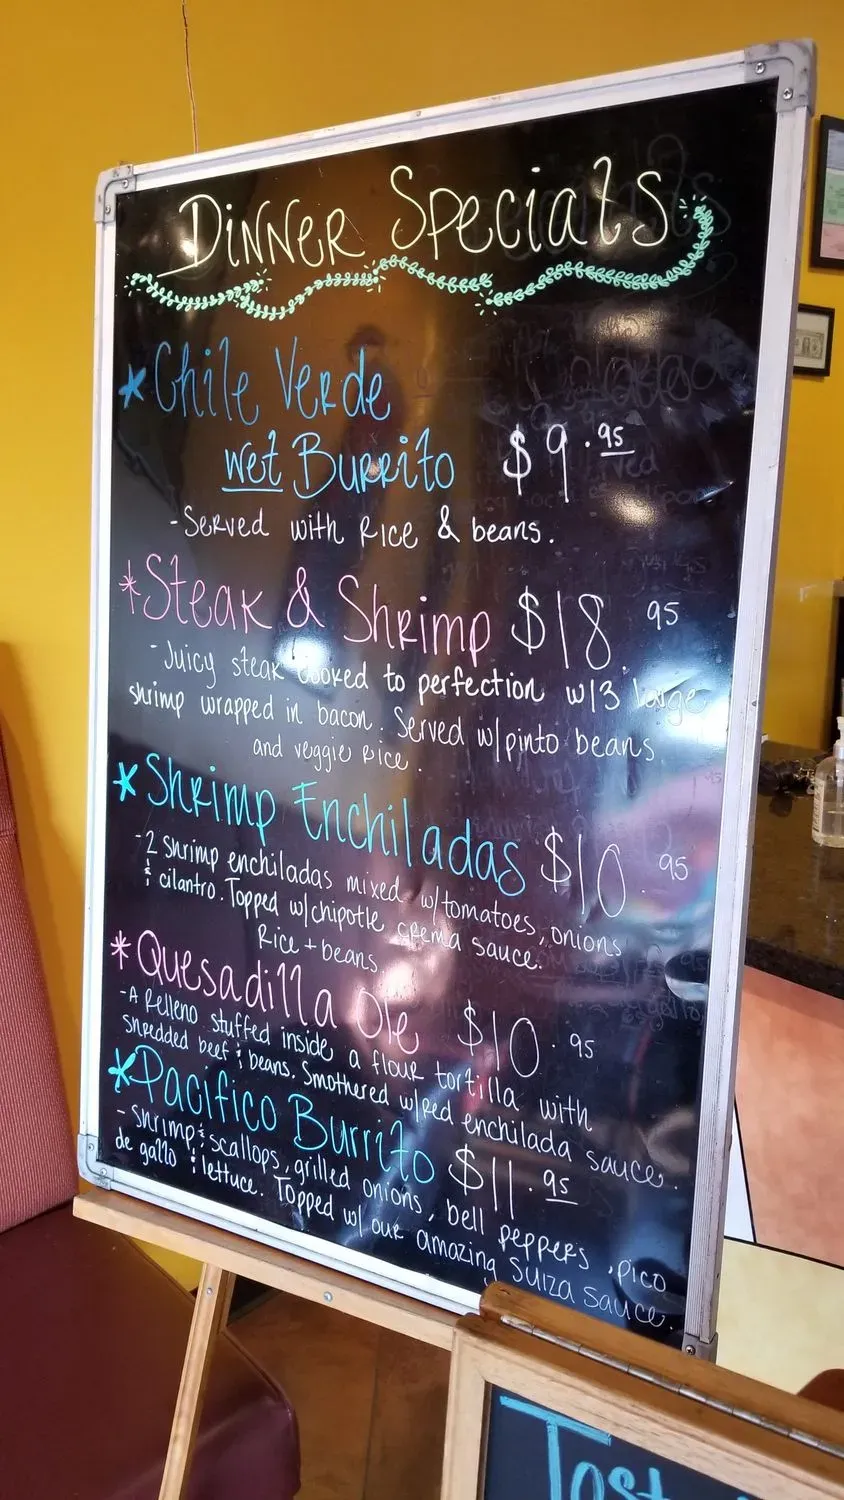 Dinner Specials
* Chile Verde
wet Burrito $9.95
- Served with Rice & beans.
* Steak & Shrimp $18.95
- Juicy steak cooked to perfection w/3 large
shrimp wrapped in bacon. Served w/pinto beans
and veggie Rice.
* Shrimp Enchiladas $10.95
- 2 shrimp enchiladas mixed w/tomatoes, onions
& cilantro. Topped w/chipotle crema sauce.
Rice + beans
* Quesadilla Ole $10.95
- A Relleno stuffed inside a flour tortilla with
shredded beef & beans. Smothered w/Red enchilada sauce.
* Pacifico Burrito $11.95
- Shrimp & scallops, grilled onions, bell peppers, pico
de gallo & lettuce. Topped w/ our amazing Suiza sauce.